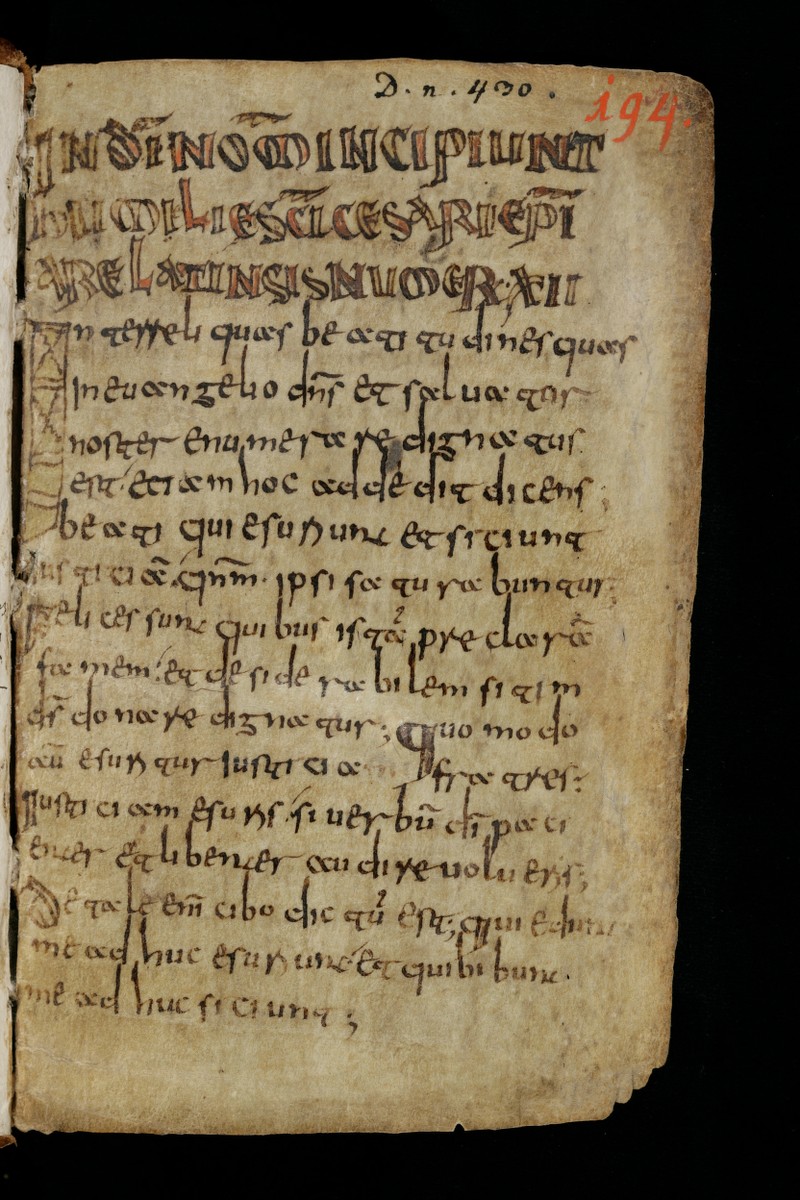 D. n. 430.
194.
IN DĪ NOM̄ INCIPIUNT
HUMILIE SC̄I CESARI EP̄I
ARELATINSIS NUMER·XII
Intellexi quas beatitudines quas
in euangelio dn̄s et saluatur
noster enumerare dignatus
est; eciam hoc addedit dicens;
beati qui esuriunt et siciunt
iusticiā. qnm̄. ipsi saturabuntur;
felices sunt quibus istā preclarā
famem. et desiderabilem sitim
ds̄ donare dignatur; quomodo
aū esuritur iusticia fratres;
iusticiam esuris. si uerbū dī paci
enter et libenter audire uolueris;
De tale em̄ cibo dictū est; qui edunt
me adhuc esuriunt et qui bibunt
me adhuc siciunt;